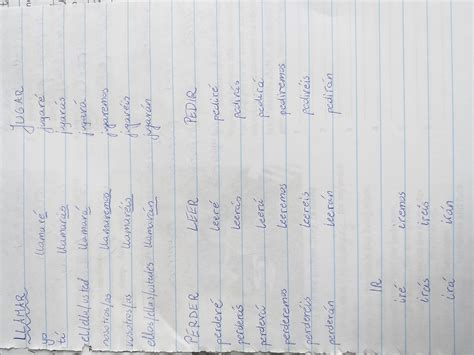 LLAMAR JUGAR
yo llamaré jugaré
tú llamarás jugarás
él/ella/usted llamará jugará
nosotros/as llamaremos jugaremos
vosotros/as llamaréis jugaréis
ellos/ellas/ustedes llamarán jugarán
PERDER LEER PEDIR
perderé leeré pediré
perderás leerás pedirás
perderá leerá pedirá
perderemos leeremos pediremos
perderéis leeréis pediréis
perderán leerán pedirán
IR
iré iremos
irás iréis
irá irán